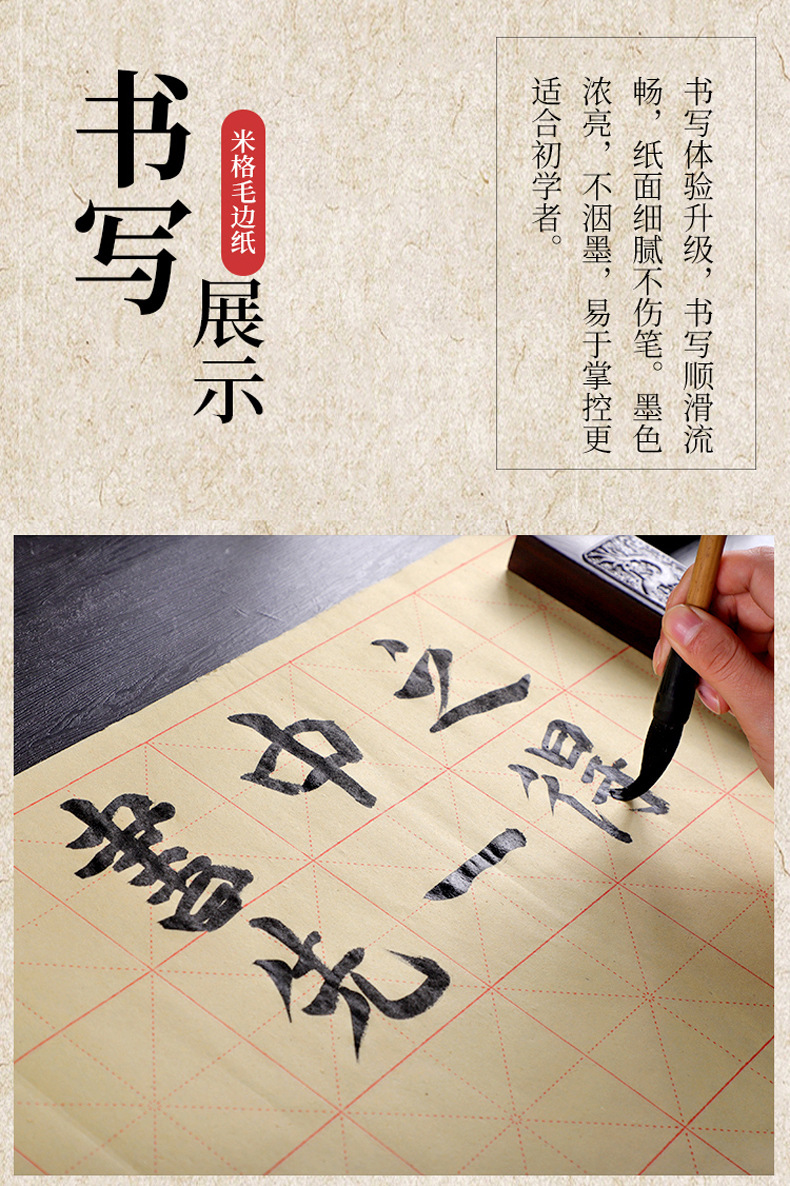 书写
米格毛边纸
展示
书写体验升级，书写顺滑流
畅，纸面细腻不伤笔。墨色
浓亮，不洇墨，易于掌控更
适合初学者。
書中之
先一得